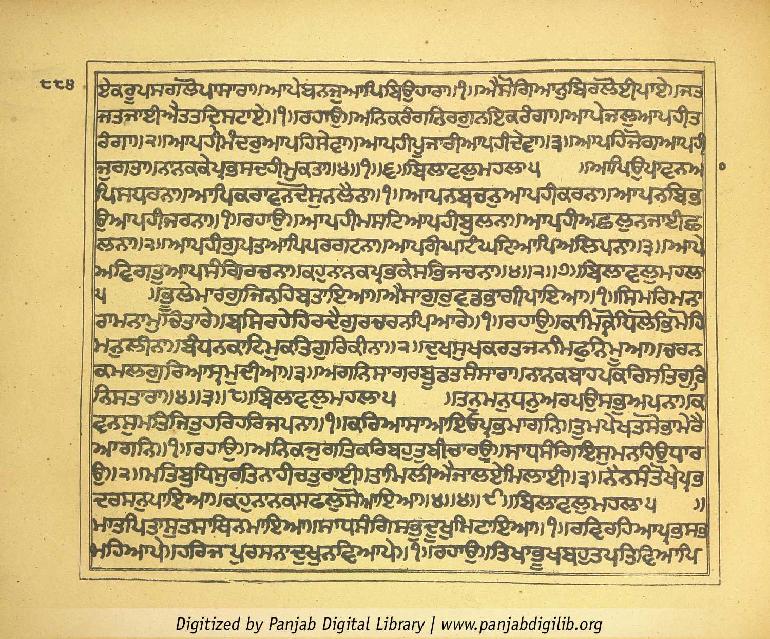 ੮੮੪
ਏਕਰੂਪਸਗਲੋਪਾਸਾਰਾ॥ਆਪੇਬਨਜੁਆਪਿਬਿਉਹਾਰਾ॥੧॥ਐਸੋਗਿਆਨੁਬਿਰਲੋਈਪਾਏ॥ਜਤ
ਜਤਜਾਈਐਤਤਦ੍ਰਿਸਟਾਏ॥੧॥ਰਹਾਉ॥ਅਨਿਕਰੰਗਨਿਰਗੁਨਇਕਰੰਗਾ॥ਆਪੇਜਲੁਆਪਹੀਤ
ਰੰਗਾ॥੨॥ਆਪਹੀਮੰਦਰੁਆਪਹਿਸੇਵਾ॥ਆਪਹੀਪੂਜਾਰੀਆਪਹੀਦੇਵਾ॥੩॥ਆਪਹਿਜੋਗਆਪਹੀ
ਜੁਗਤਾ॥ਨਾਨਕਕੇਪ੍ਰਭਸਦਹੀਮੁਕਤਾ॥੪॥੧॥੬॥ਬਿਲਾਵਲੁਮਹਲਾ੫ ॥ਆਪਿਉਪਾਵਨਆ
ਪਿਸਧਰਨਾ॥ਆਪਿਕਰਾਵਨਦੋਸੁਨਲੈਨਾ॥੧॥ਆਪਨਬਚਨੁਆਪਹੀਕਰਨਾ॥ਆਪਨਬਿਭ
ਉਆਪਹੀਜਰਨਾ॥੧॥ਰਹਾਉ॥ਆਪਹੀਮਸਟਿਆਪਹੀਬੁਲਨਾ॥ਆਪਹੀਅਛਲੁਨਜਾਈਛ
ਲਨਾ॥੨॥ਆਪਹੀਗੁਪਤਆਪਿਪਰਗਟਨਾ॥ਆਪਹੀਘਟਿਘਟਿਆਪਿਅਲਿਪਨਾ॥੩॥ਆਪੇ
ਅਵਿਗਤੁਆਪਸੰਗਿਰਚਨਾ॥ਕਹੁਨਾਨਕਪ੍ਰਭਕੇਸਭਿਜਚਨਾ॥੪॥੨॥੭॥ਬਿਲਾਵਲੁਮਹਲਾ
੫ ॥ਭੂਲੇਮਾਰਗੁਜਿਨਹਿਬਤਾਇਆ॥ਐਸਾਗੁਰੁਵਡਭਾਗੀਪਾਇਆ॥੧॥ਸਿਮਰਿਮਨਾ
ਰਾਮਨਾਮੁਚਿਤਾਰੇ॥ਬਸਿਰਹੇਹਿਰਦੈਗੁਰਚਰਨਪਿਆਰੇ॥੧॥ਰਹਾਉ॥ਕਾਮਿਕ੍ਰੋਧਿਲੋਭਿਮੋਹਿ
ਮਨੁਲੀਨਾ॥ਬੰਧਨਕਾਟਿਮੁਕਤਿਗੁਰਿਕੀਨਾ॥੨॥ਦੁਖਸੁਖਕਰਤਜਨਮਿਫੁਨਿਮੂਆ॥ਚਰਨ
ਕਮਲਗੁਰਿਆਸ੍ਰਮੁਦੀਆ॥੩॥ਅਗਨਿਸਾਗਰਬੂਡਤਸੰਸਾਰਾ॥ਨਾਨਕਬਾਹਪਕਰਿਸਤਿਗੁਰਿ
ਨਿਸਤਾਰਾ॥੪॥੩॥੮॥ਬਿਲਾਵਲੁਮਹਲਾ੫ ॥ਤਨੁਮਨੁਧਨੁਅਰਪਉਸਭੁਅਪਨਾ॥ਕ
ਵਨਸੁਮਤਿਜਿਤੁਹਰਿਹਰਿਜਪਨਾ॥੧॥ਕਰਿਆਸਾਆਇਓਪ੍ਰਭਮਾਗਨਿ॥ਤੁਮਪੇਖਤਸੋਭਾਮੇਰੈ
ਆਗਨਿ॥੧॥ਰਹਾਉ॥ਅਨਿਕਜੁਗਤਿਕਰਿਬਹੁਤੁਬੀਚਾਰਉ॥ਸਾਧਸੰਗਿਇਸੁਮਨਹਿਉਧਾਰ
ਉ॥੨॥ਮਤਿਬੁਧਿਸੁਰਤਿਨਾਹੀਚਤੁਰਾਈ॥ਤਾਮਿਲੀਐਜਾਲਏਮਿਲਾਈ॥੩॥ਨੈਨਸੰਤੋਖੇਪ੍ਰਭ
ਦਰਸਨੁਪਾਇਆ॥ਕਹੁਨਾਨਕਸਫਲੁਸੋਆਇਆ॥੪॥੪॥੯॥ਬਿਲਾਵਲੁਮਹਲਾ੫ ॥
ਮਾਤਪਿਤਾਸੁਤਸਾਥਿਨਮਾਇਆ॥ਸਾਧਸੰਗਿਸਭੁਦੂਖੁਮਿਟਾਇਆ॥੧॥ਰਵਿਰਹਿਆਪ੍ਰਭੁਸਭ
ਮਹਿਆਪੇ॥ਹਰਿਜਪੁਰਸਨਾਦੁਖੁਨਵਿਆਪੇ॥੧॥ਰਹਾਉ॥ਤਿਖਾਭੂਖਬਹੁਤਪਤਿਵਿਆਪਿ
Digitized by Panjab Digital Library | www.panjabdigilib.org